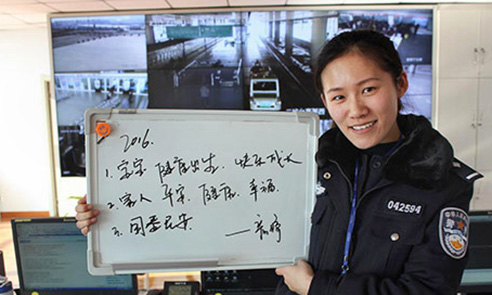 2016.
1. 宝宝 健康出生、快乐成长
2. 家人 平安、健康、幸福.
3. 国泰民安
042594